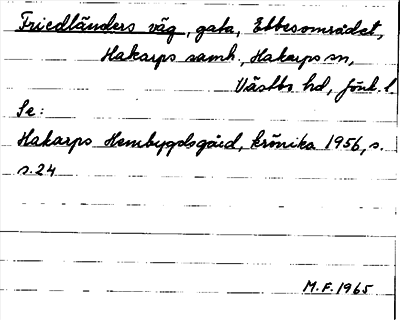 Friedländers väg, gata, Ebbesområdet,
Hakarps samh., Hakarps sn,
Västbo hd, Jönk. l.
Se:
Hakarps Hembygdsgård, krönika 1956, s.
s. 24
M.F. 1965